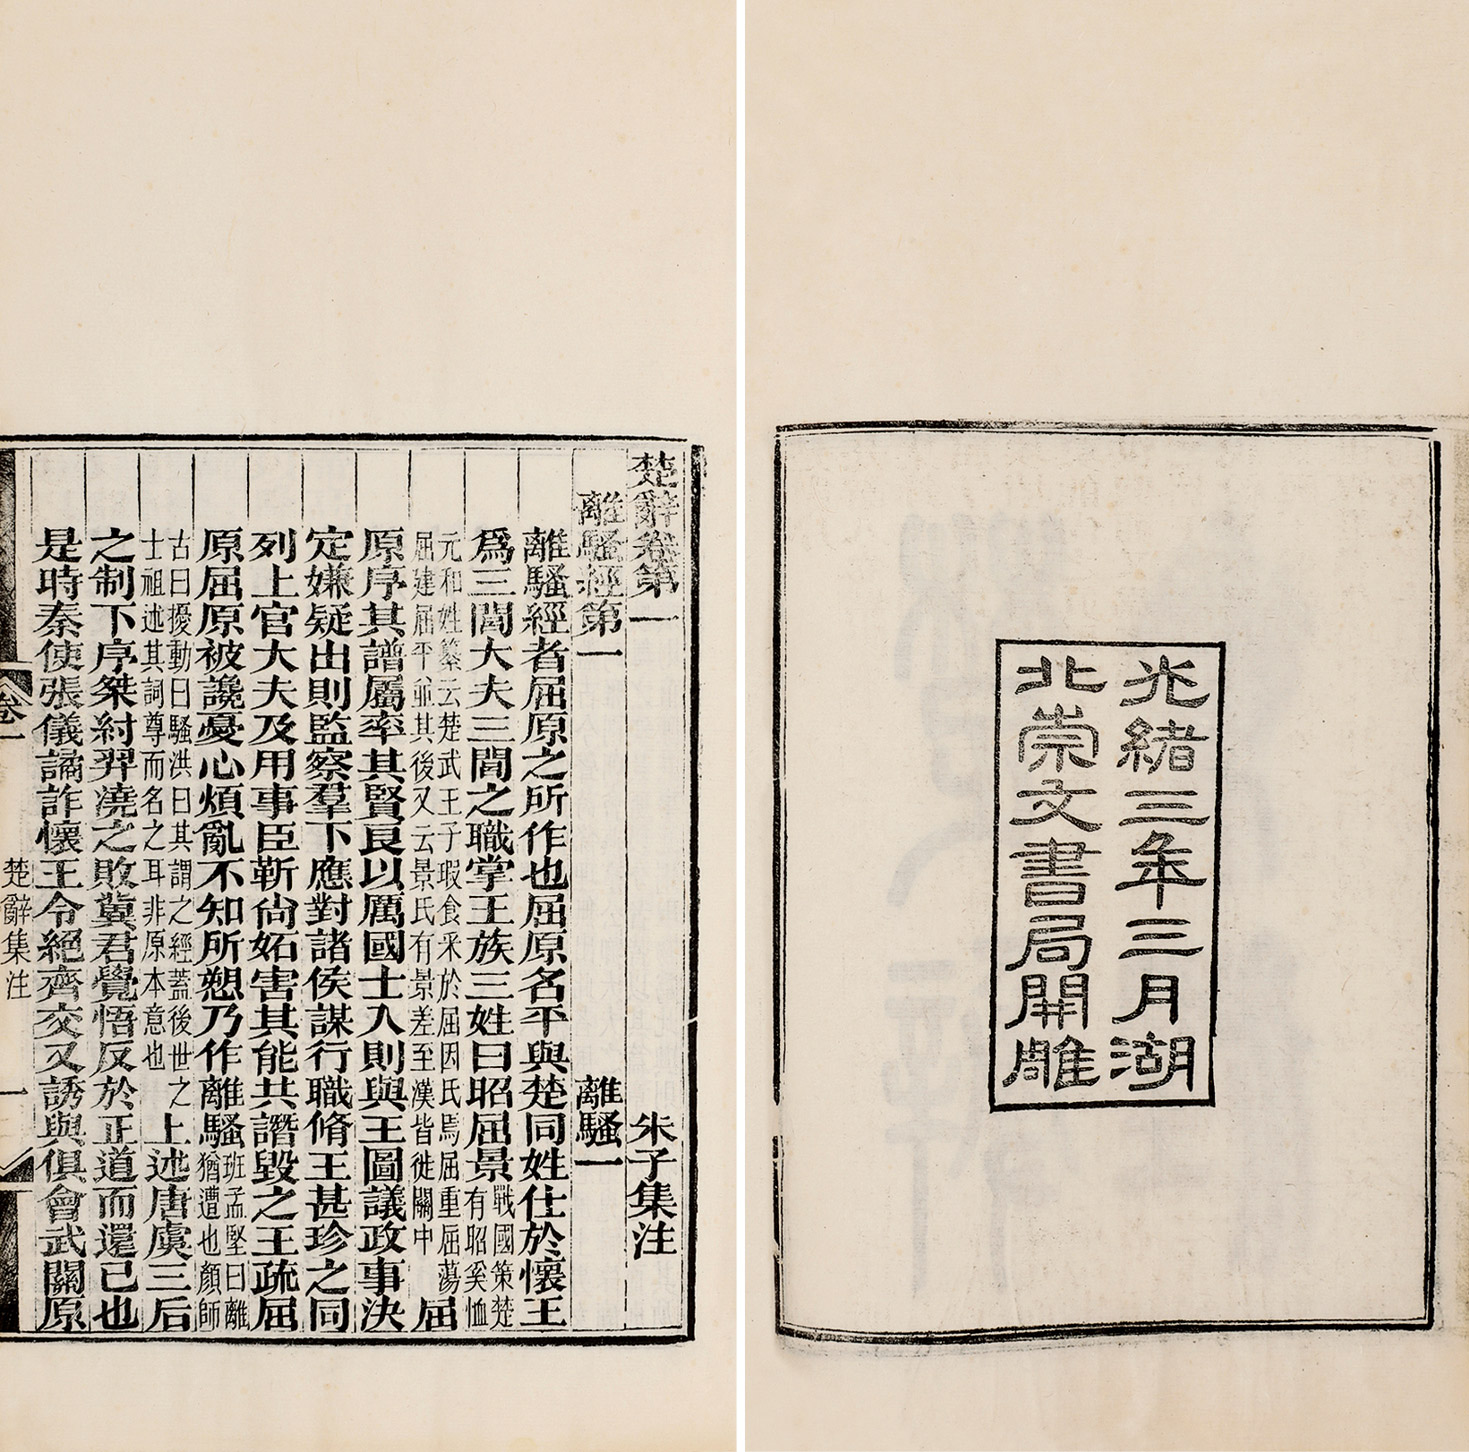 光緒三年三月湖
北崇文書局開雕
楚辭卷第一 朱子集注
離騷經第一 離騷一
離騷經者屈原之所作也屈原名平與楚同姓仕於懷王
爲三閭大夫三閭之職掌王族三姓曰昭屈景戰國策楚有昭奚恤
元和姓纂云楚武王子瑕食采於屈因氏焉屈重屈蕩屈建屈平並其後又云景氏有景差至漢皆徙關中屈
原序其譜屬率其賢良以厲國士入則與王圖議政事決
定嫌疑出則監察羣下應對諸侯謀行職脩王甚珍之同
列上官大夫及用事臣靳尙妬害其能共譖毀之王疏屈
原屈原被讒憂心煩亂不知所愬乃作離騷班孟堅曰離猶遭也顏師
古曰擾動曰騷洪曰其謂之經蓋後世之士祖述其詞尊而名之耳非原本意也上述唐虞三后
之制下序桀紂羿澆之敗冀君覺悟反於正道而還己也
是時秦使張儀譎詐懷王令絕齊交又誘與俱會武關原
卷一 楚辭集注 一